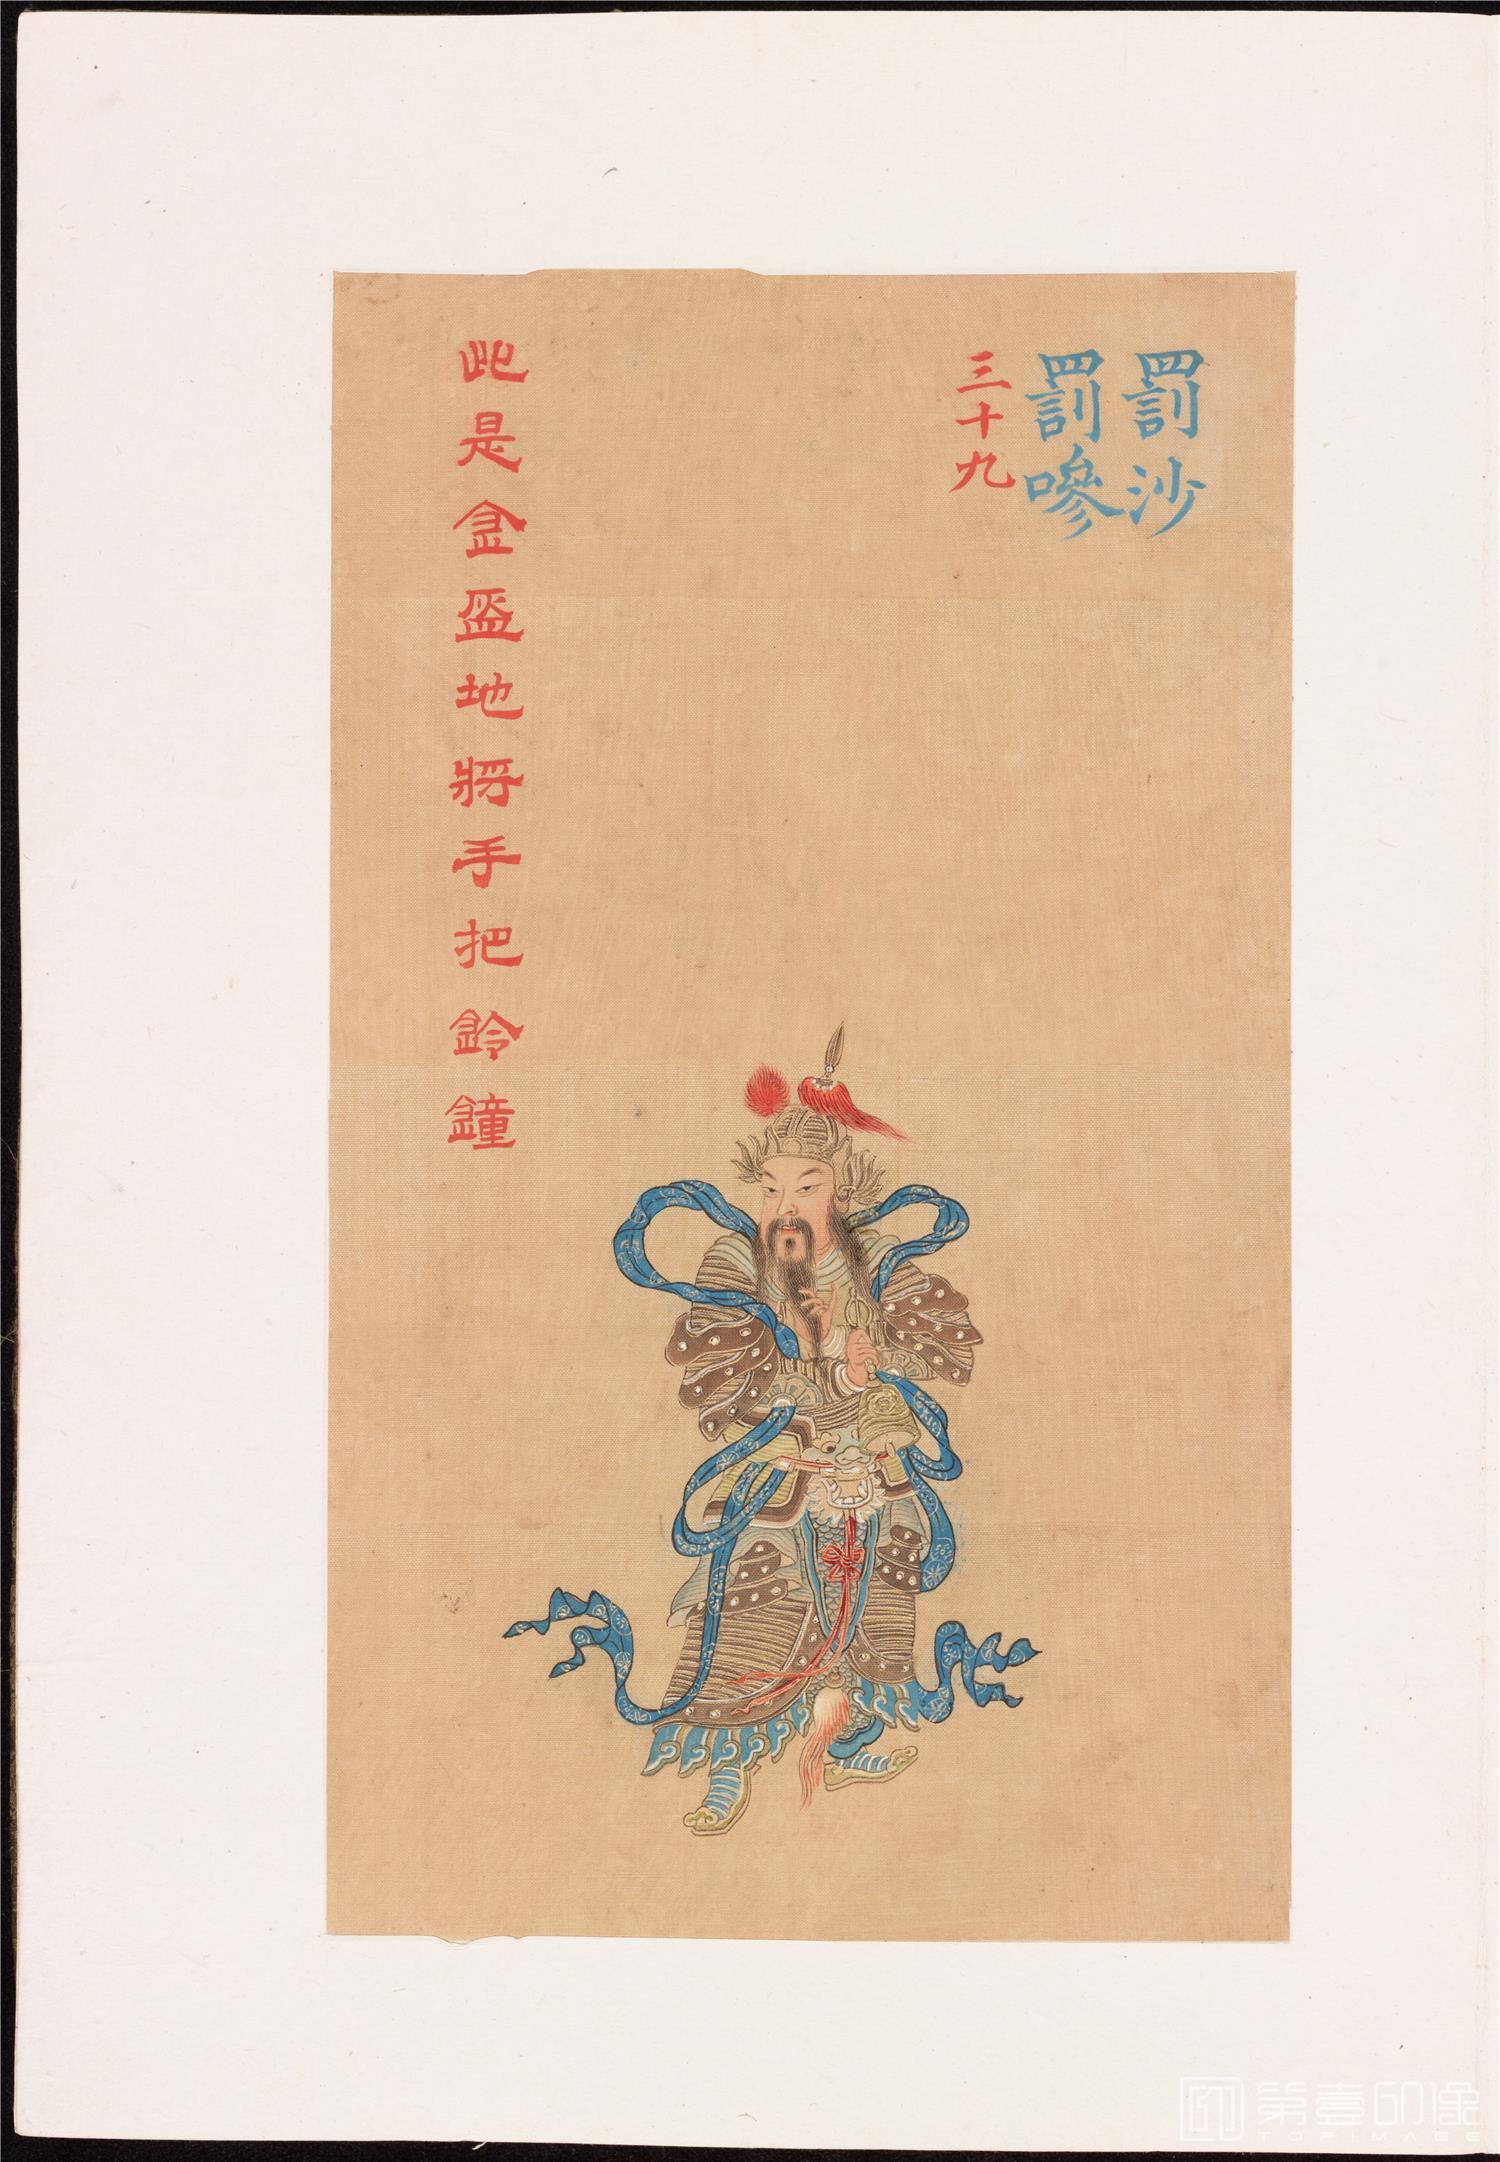 罰沙
罰嘇
三十九
此是金盔地將手把鈴鐘
第壹印像
TOPIMAGE